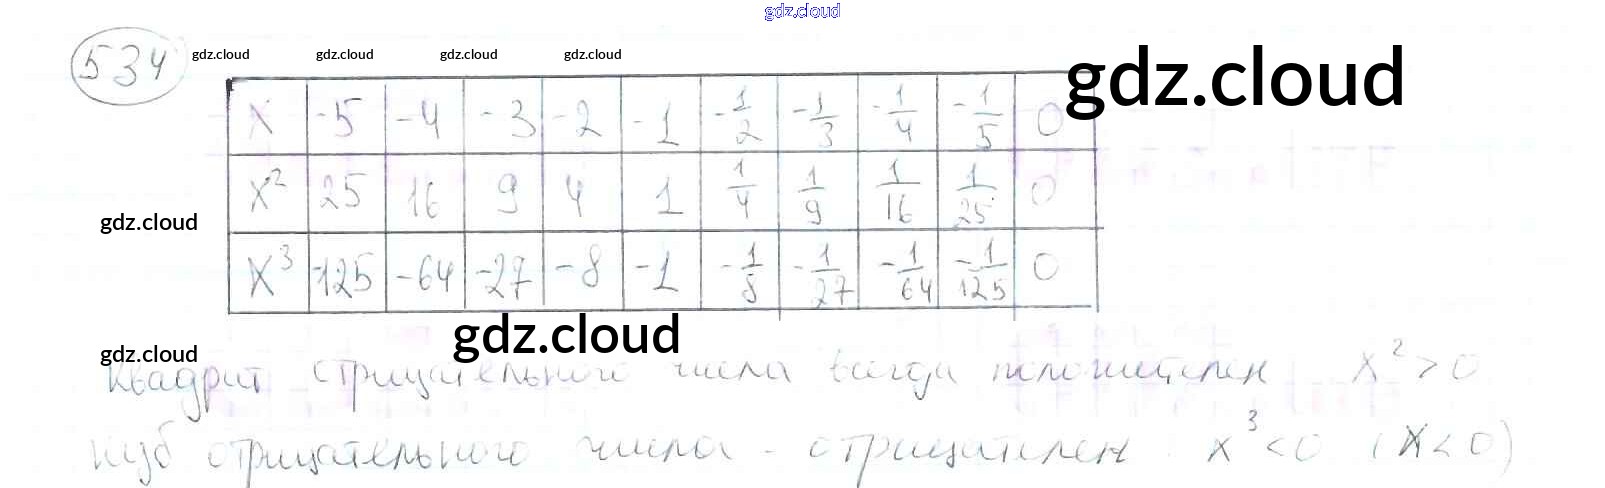 gdz.cloud
534 gdz.cloud gdz.cloud gdz.cloud gdz.cloud
gdz.cloud
x -5 -4 -3 -2 -1 -1/2 -1/3 -1/4 -1/5 0
x² 25 16 9 4 1 1/4 1/9 1/16 1/25 0
gdz.cloud
x³ -125 -64 -27 -8 -1 -1/8 -1/27 -1/64 -1/125 0
gdz.cloud
gdz.cloud
Квадрат отрицательного числа всегда положителен x² > 0
Куб отрицательного числа - отрицателен. x³ < 0 (x < 0)